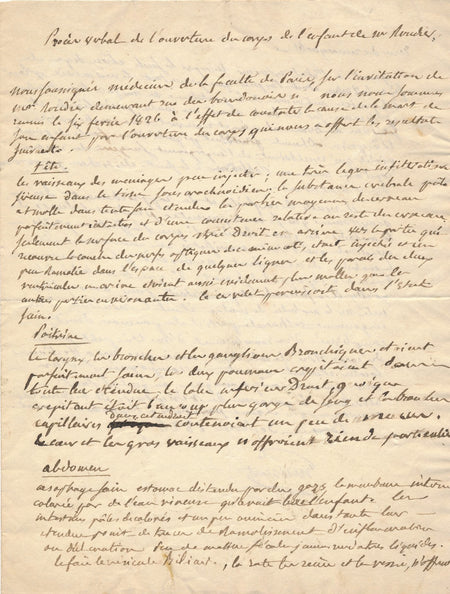 Procès verbal de l'ouverture du corps de l'enfant de mr Roudier,
nous soussignés médecins de la faculté de Paris, sur l'invitation de
mr Roudier demeurant rue des bourdonnois n nous nous sommes
réunis le six fevrier 1826 à l'effet de constater la cause de la mort de
son enfant par l'ouverture du corps qui nous a offert les resultats
suivants.
tête.
les vaisseaux des meninges peu injectés; une très legere infiltration
séreuse dans le tissu sous arachnoidien; la substance cerebrale pâle
et molle dans toute son etendue les parties moyennes du cerveau
parfaitement intactes et d'une consistance relative au reste du cerveau,
seulement la surface du corps strié Droit en arriere vers la partie qui
recouvre la couche des nerfs optiques était injectée et un
peu Ramollie dans l'espace de quelques lignes et les parois des deux
ventricules en arriere étoient aussi evidemment plus molles que les
autres parties environnantes. le cervelet paroissoit dans l'Etat
sain.
Poitrine
le larynx, les bronches et les ganglions Bronchiques étoient
parfaitement sains, les deux poumons crepitoient dans
toute leur etendue. le lobe inferieur Droit, quoique
crepitant était beaucoup plus gorgé de sang et les bronches
capillaires dans cet endroit contenoient un peu de mucus.
le cœur et les gros vaisseaux n'offroient rien de particulier
abdomen
œsophage sain estomac distendu par des gaz, la membrane interne
colorée par de l'eau vineuse qu'avait bue l'enfant. les
intestins pâles décolorés et un peu amincis dans toute leur
etendue point de traces de Ramollissement d'inflammation
ou d'ulceration peu de matieres fécales jaunes verdatres liquides.
le foie la vésicule Biliaire, la rate les reins et la vessie, n'offroient